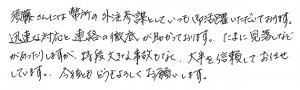 後藤さんには弊所の外注参謀としていつもご活躍いただいております。
迅速な対応と連絡の徹底が助かっております。たまに見落としなど
があったりしますが、特段大きな事故もなく、大半を信頼してお任せ
しています。今後もどうぞよろしくお願いします。